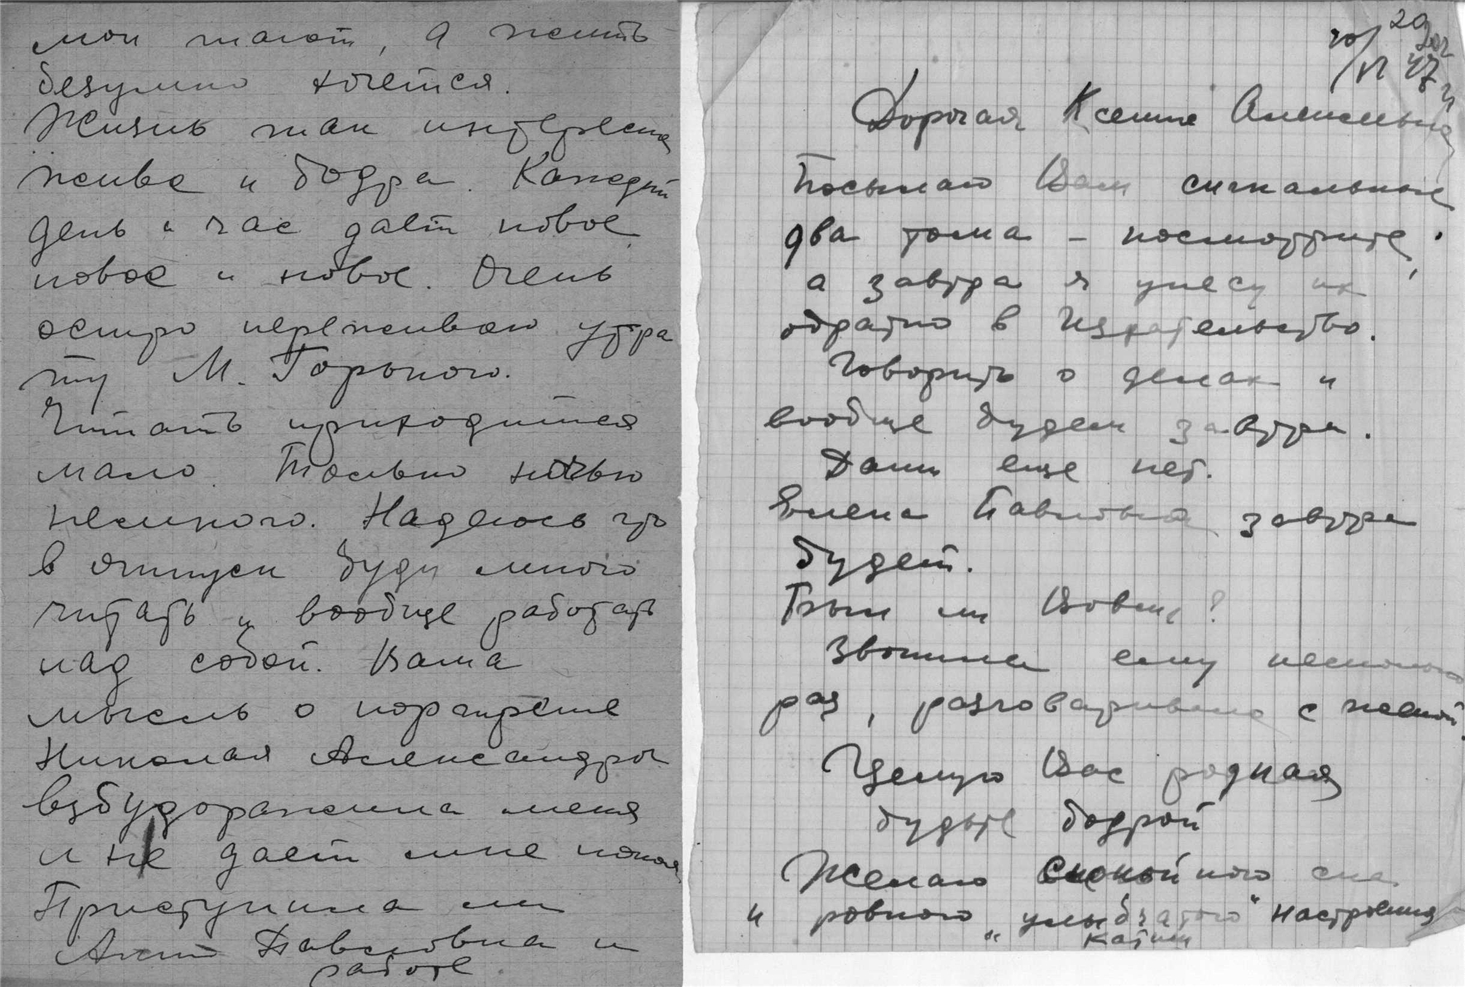 мои тают, а жить
безумно хочется.
Жизнь так интересна
жива и бодра. Каждый
день и час дает новое
новое и новое. Очень
остро переживаю утра
ту М. Горького.
Читать приходится
мало. Только ночью
немного. Надеюсь что
в отпуску буду много
читать и вообще работать
над собой. Ваша
мысль о портрете
Николая Александро
взбудоражила меня
и не дает мне покоя
Приступила ли
Павловна и
работе
20/VI 47
Дорогая Ксения Алексеевна
Посылаю Вам сигнальные
два тома – посмотрите,
а завтра я унесу их
обратно в Издательство.
Говорить о делах и
вообще будем завтра.
Дани еще нет.
Елена Павловна завтра
будет.
Был ли Вовси?
Звонила ему несколько
раз, разговаривала с женой.
Целую Вас родная
будьте бодрой
Желаю спокойного сна
и ровного „улыбчатого" настроения